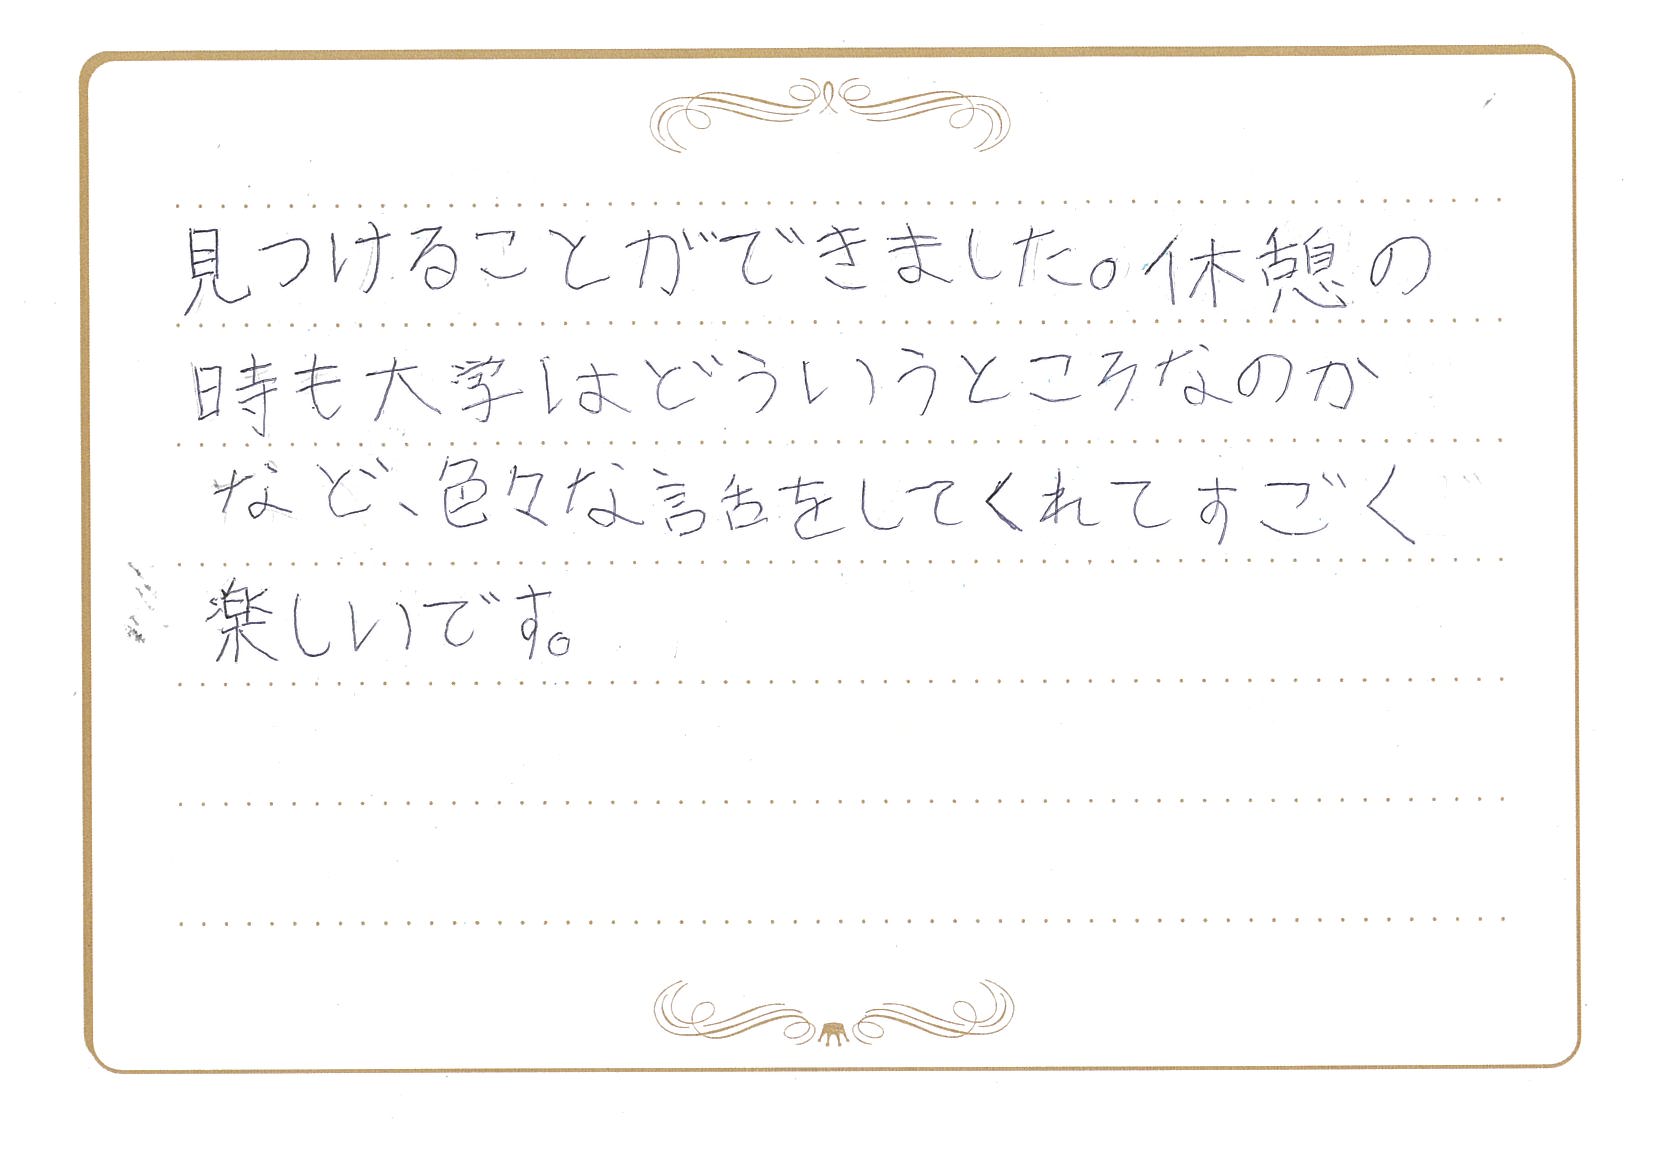 見つけることができました。休憩の
時も大学はどういうところなのか
など、色々な話をしてくれてすごく
楽しいです。